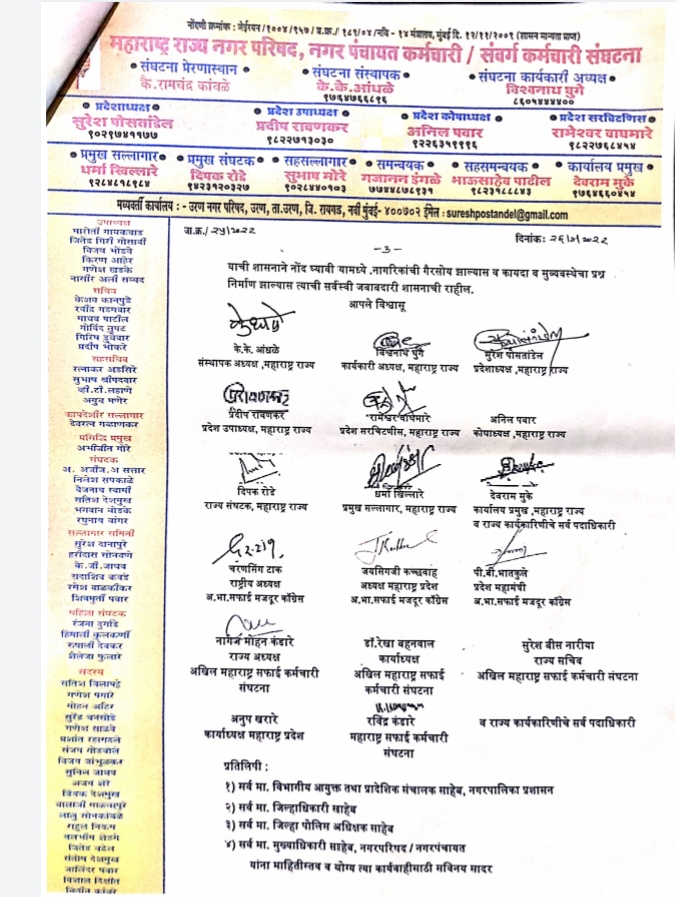 नोंदणी क्रमांक : जेईरयन /१००४ /९५७ / प्र.क्र./ १८९/०४ /नवि - १४ मंत्रालय, मुंबई दि. १२/११/२००९ (शासन मान्यता प्राप्त)
महाराष्ट्र राज्य नगर परिषद, नगर पंचायत कर्मचारी / संवर्ग कर्मचारी संघटना
• संघटना प्रेरणास्थान • • संघटना संस्थापक • • संघटना कार्यकारी अध्यक्ष •
कै.रामचंद्र कांबळे के.के.आंधळे विश्वनाथ घुगे
९७६४७६६८९६ ८६०५४४४४००
• प्रदेशाध्यक्ष • • प्रदेश उपाध्यक्ष • • प्रदेश कोषाध्यक्ष • • प्रदेश सरचिटणिस •
सुरेश पोसतांडेल प्रदीप रावणकर अनिल पवार रामेश्वर वाघमारे
९०२९७४११७७ ९८२२७१३०३० ९२२६३५९९९६ ९८२२७६८४५४
• प्रमुख सल्लागार • • प्रमुख संघटक • • सहसल्लागार • • समन्वयक • • सहसमन्वयक • • कार्यालय प्रमुख •
धर्मा खिल्लारे दिपक रोडे सुभाष मोरे गजानन इंगळे भाऊसाहेब पाटील देवराम मुके
९२८४८१८९८४ ९४२३१२०३२७ ९०२८४४०१०३ ७७४४८७८९३१ ९८२३१८८८४३ ९७६४६६०४५४
मध्यवर्ती कार्यालय : - उरण नगर परिषद, उरण, ता.उरण, जि. रायगड, नवी मुंबई- ४००७०२ ईमेल : sureshpostandel@gmail.com
जा.क्र./ २५/२०२२ दिनांक: २६/७/२०२२
-३-
याची शासनाने नोंद घ्यावी यामध्ये .नागरिकांची गैरसोय झाल्यास व कायदा व सुव्यवस्थेचा प्रश्न
निर्माण झाल्यास त्याची सर्वस्वी जवाबदारी शासनाची राहील.
आपले विश्वासू
के.के. आंधळे विश्वनाथ घुगे सुरेश पोसतांडेल
संस्थापक अध्यक्ष ,महाराष्ट्र राज्य कार्यकारी अध्यक्ष, महाराष्ट्र राज्य प्रदेशाध्यक्ष ,महाराष्ट्र राज्य
प्रदीप रावणकर रामेश्वर वाघमारे अनिल पवार
प्रदेश उपाध्यक्ष, महाराष्ट्र राज्य प्रदेश सरचिटणीस, महाराष्ट्र राज्य कोषाध्यक्ष ,महाराष्ट्र राज्य
दिपक रोडे धर्मा खिल्लारे देवराम मुके
राज्य संघटक, महाराष्ट्र राज्य प्रमुख सल्लागार, महाराष्ट्र राज्य कार्यालय प्रमुख ,महाराष्ट्र राज्य
व राज्य कार्यकारिणीचे सर्व पदाधिकारी
चरणसिंग टाक जयसिंगजी कच्छवाह पी.बी.भातकुले
राष्ट्रीय अध्यक्ष अध्यक्ष महाराष्ट्र प्रदेश प्रदेश महामंत्री
अ.भा.सफाई मजदूर काँग्रेस अ.भा.सफाई मजदूर काँग्रेस अ.भा.सफाई मजदूर काँग्रेस
नागेन मोहन कंडारे डॉ.रेखा बहनवाल सुरेश बीस नारीया
राज्य अध्यक्ष कार्याध्यक्ष राज्य सचिव
अखिल महाराष्ट्र सफाई कर्मचारी अखिल महाराष्ट्र सफाई अखिल महाराष्ट्र सफाई कर्मचारी संघटना
संघटना कर्मचारी संघटना
अनुप खरारे रविंद्र कंडारे व राज्य कार्यकारिणीचे सर्व पदाधिकारी
कार्याध्यक्ष महाराष्ट्र प्रदेश महाराष्ट्र सफाई कर्मचारी
संघटना
प्रतिलिपी :
१) सर्व मा. विभागीय आयुक्त तथा प्रादेशिक संचालक साहेब, नगरपालिका प्रशासन
२) सर्व मा. जिल्हाधिकारी साहेब
३) सर्व मा. जिल्हा पोलिस अधिक्षक साहेब
४) सर्व मा. मुख्याधिकारी साहेब, नगरपरिषद / नगरपंचायत
यांना माहितीस्तव व योग्य त्या कार्यवाहीसाठी सविनय सादर
उपाध्यक्ष
मारोती गायकवाड
जितेंद्र गिरी गोसावी
विजय भोंडवे
किरण आहेर
गणेश खडके
नासीर अली सय्यद
सचिव
केशव कानपुडे
रवींद्र गडगवार
माधव पाटील
गोविंद तुपट
गिरिष डुबेवार
प्रदीप भोकरे
सहसचिव
रत्नाकर अडसिरे
सुभाष श्रीपदवार
व्ही.टी.लहाणे
अयुब मणेर
कायदेशीर सल्लागार
देवरत्न गव्हाणकर
प्रसिद्धी प्रमुख
अभीजीत गोरे
संघटक
अ. अजीज.अ सत्तार
निलेश सपकाळे
वैजनाथ स्वामी
सतिश देशमुख
भगवान बोडके
रघुनाथ वांगर
सल्लागार समिती
सुरेश दानापुरे
हरीदास सोनवणे
के.जी.जाधव
सदाशिव कवडे
रमेश वाळकीकर
शिवमुर्ती पवार
महिला संघटक
रंजना दुर्गाडे
हिमाली कुलकर्णी
रुपाली देवकर
शैलेजा फुलारे
सदस्य
सतिश चिलापट्टे
गणेश पगारे
मोहन अहिर
सुरेंद्र बनसोडे
गणेश साळवे
प्रशांत रहांगदळे
संजय गोडबोले
विजय जांभुळकर
सुनिल जाधव
अजय शेरे
विवेक देशमुख
लालु सोनकांबळे
राहुल निकम
संतोष देशमुख
जालिंदर पवार
विशाल दिक्षीत